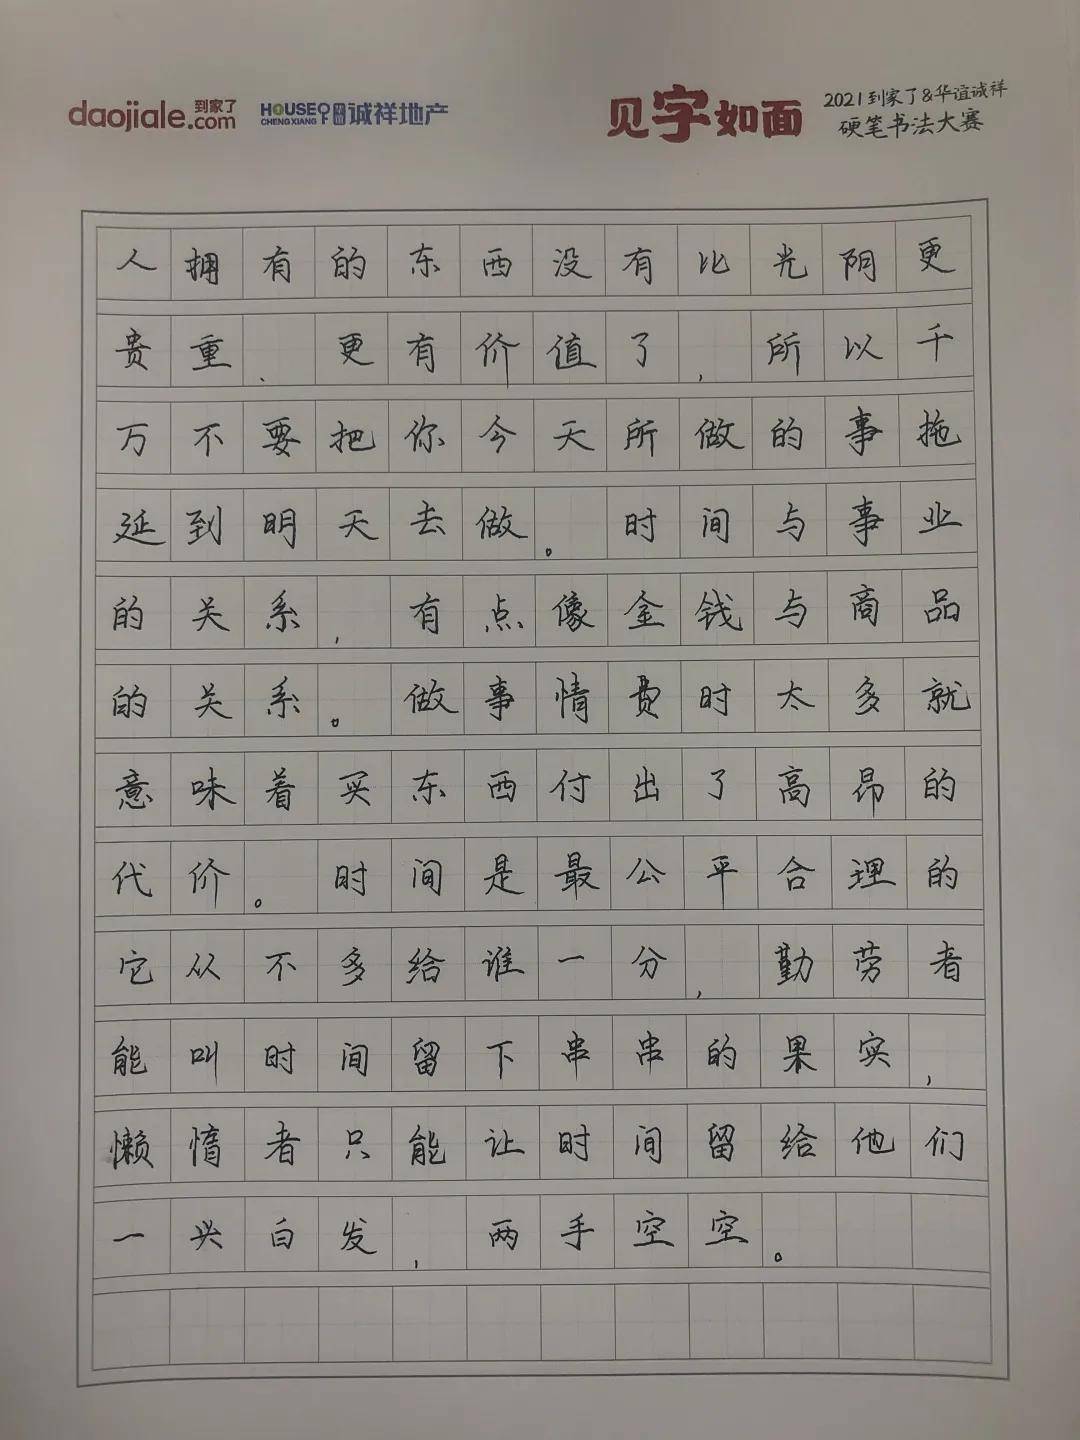 daojiale 到家了 .com HOUSE CHENGXIANG 诚祥地产 见字如面 2021到家了&华谊诚祥
硬笔书法大赛
人拥有的东西没有比光阴更
贵重、更有价值了，所以千
万不要把你今天所做的事拖
延到明天去做。时间与事业
的关系，有点像金钱与商品
的关系。做事情费时太多就
意味着买东西付出了高昂的
代价。时间是最公平合理的
它从不多给谁一分，勤劳者
能叫时间留下串串的果实，
懒惰者只能让时间留给他们
一兴白发，两手空空。